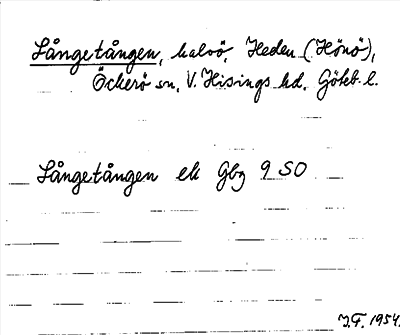 Långetången, halvö, Heden (Hönö),
Öckerö sn, V. Hisings hd, Göteb. l.
Långetången ek Gbg 9 SO
J.F. 1954.